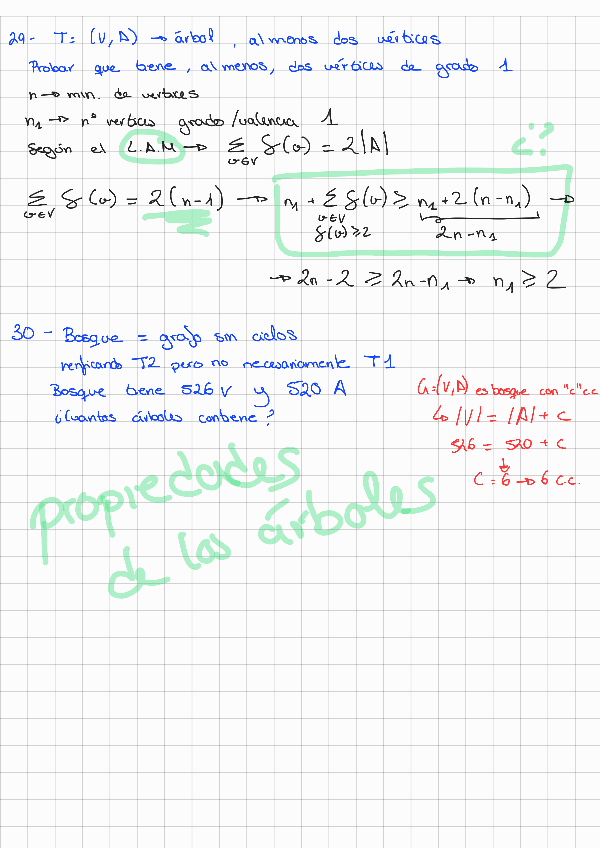 29- T=(V,A) → árbol, al menos dos vértices
Probar que tiene, al menos, dos vértices de grado 1
n → min. de vertices
n₁ → nº vertices grado/valencia 1
Según el L.A.M → Σ_{v∈V} δ(v) = 2|A|
¿?
Σ_{v∈V} δ(v) = 2(n-1) → n₁ + Σ_{v∈V, δ(v)≥2} δ(v) ≥ n₁+2(n-n₁) →
2n-n₁
→ 2n-2 ≥ 2n-n₁ → n₁ ≥ 2
30- Bosque = grafo sin ciclos
verificando T2 pero no necesariamente T1
Bosque tiene 526 V y 520 A
¿Cuantos árboles contiene?
G=(V,A) es bosque con "c" c.c
↳ |V| = |A| + c
526 = 520 + c
↓
c = 6 → 6 c.c.
propiedades
de los árboles